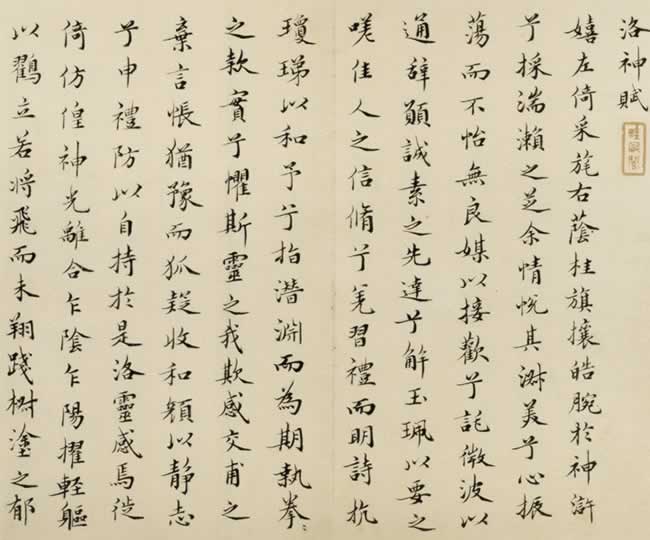 洛神賦
嬉左倚采旄右蔭桂旗攘皓腕於神滸
兮採湍瀨之芝余情悅其淑美兮心振
蕩而不怡無良媒以接歡兮託微波以
通辭願誠素之先達兮解玉珮以要之
嗟佳人之信脩兮羌習禮而明詩抗
瓊珶以和予兮指潛淵而為期執拳〻
之款實兮懼斯靈之我欺感交甫之
棄言悵猶豫而狐疑收和顏以靜志
兮申禮防以自持於是洛靈感焉徙
倚仿偟神光離合乍陰乍陽擢輕軀
以鸛立若將飛而未翔踐椒塗之郁